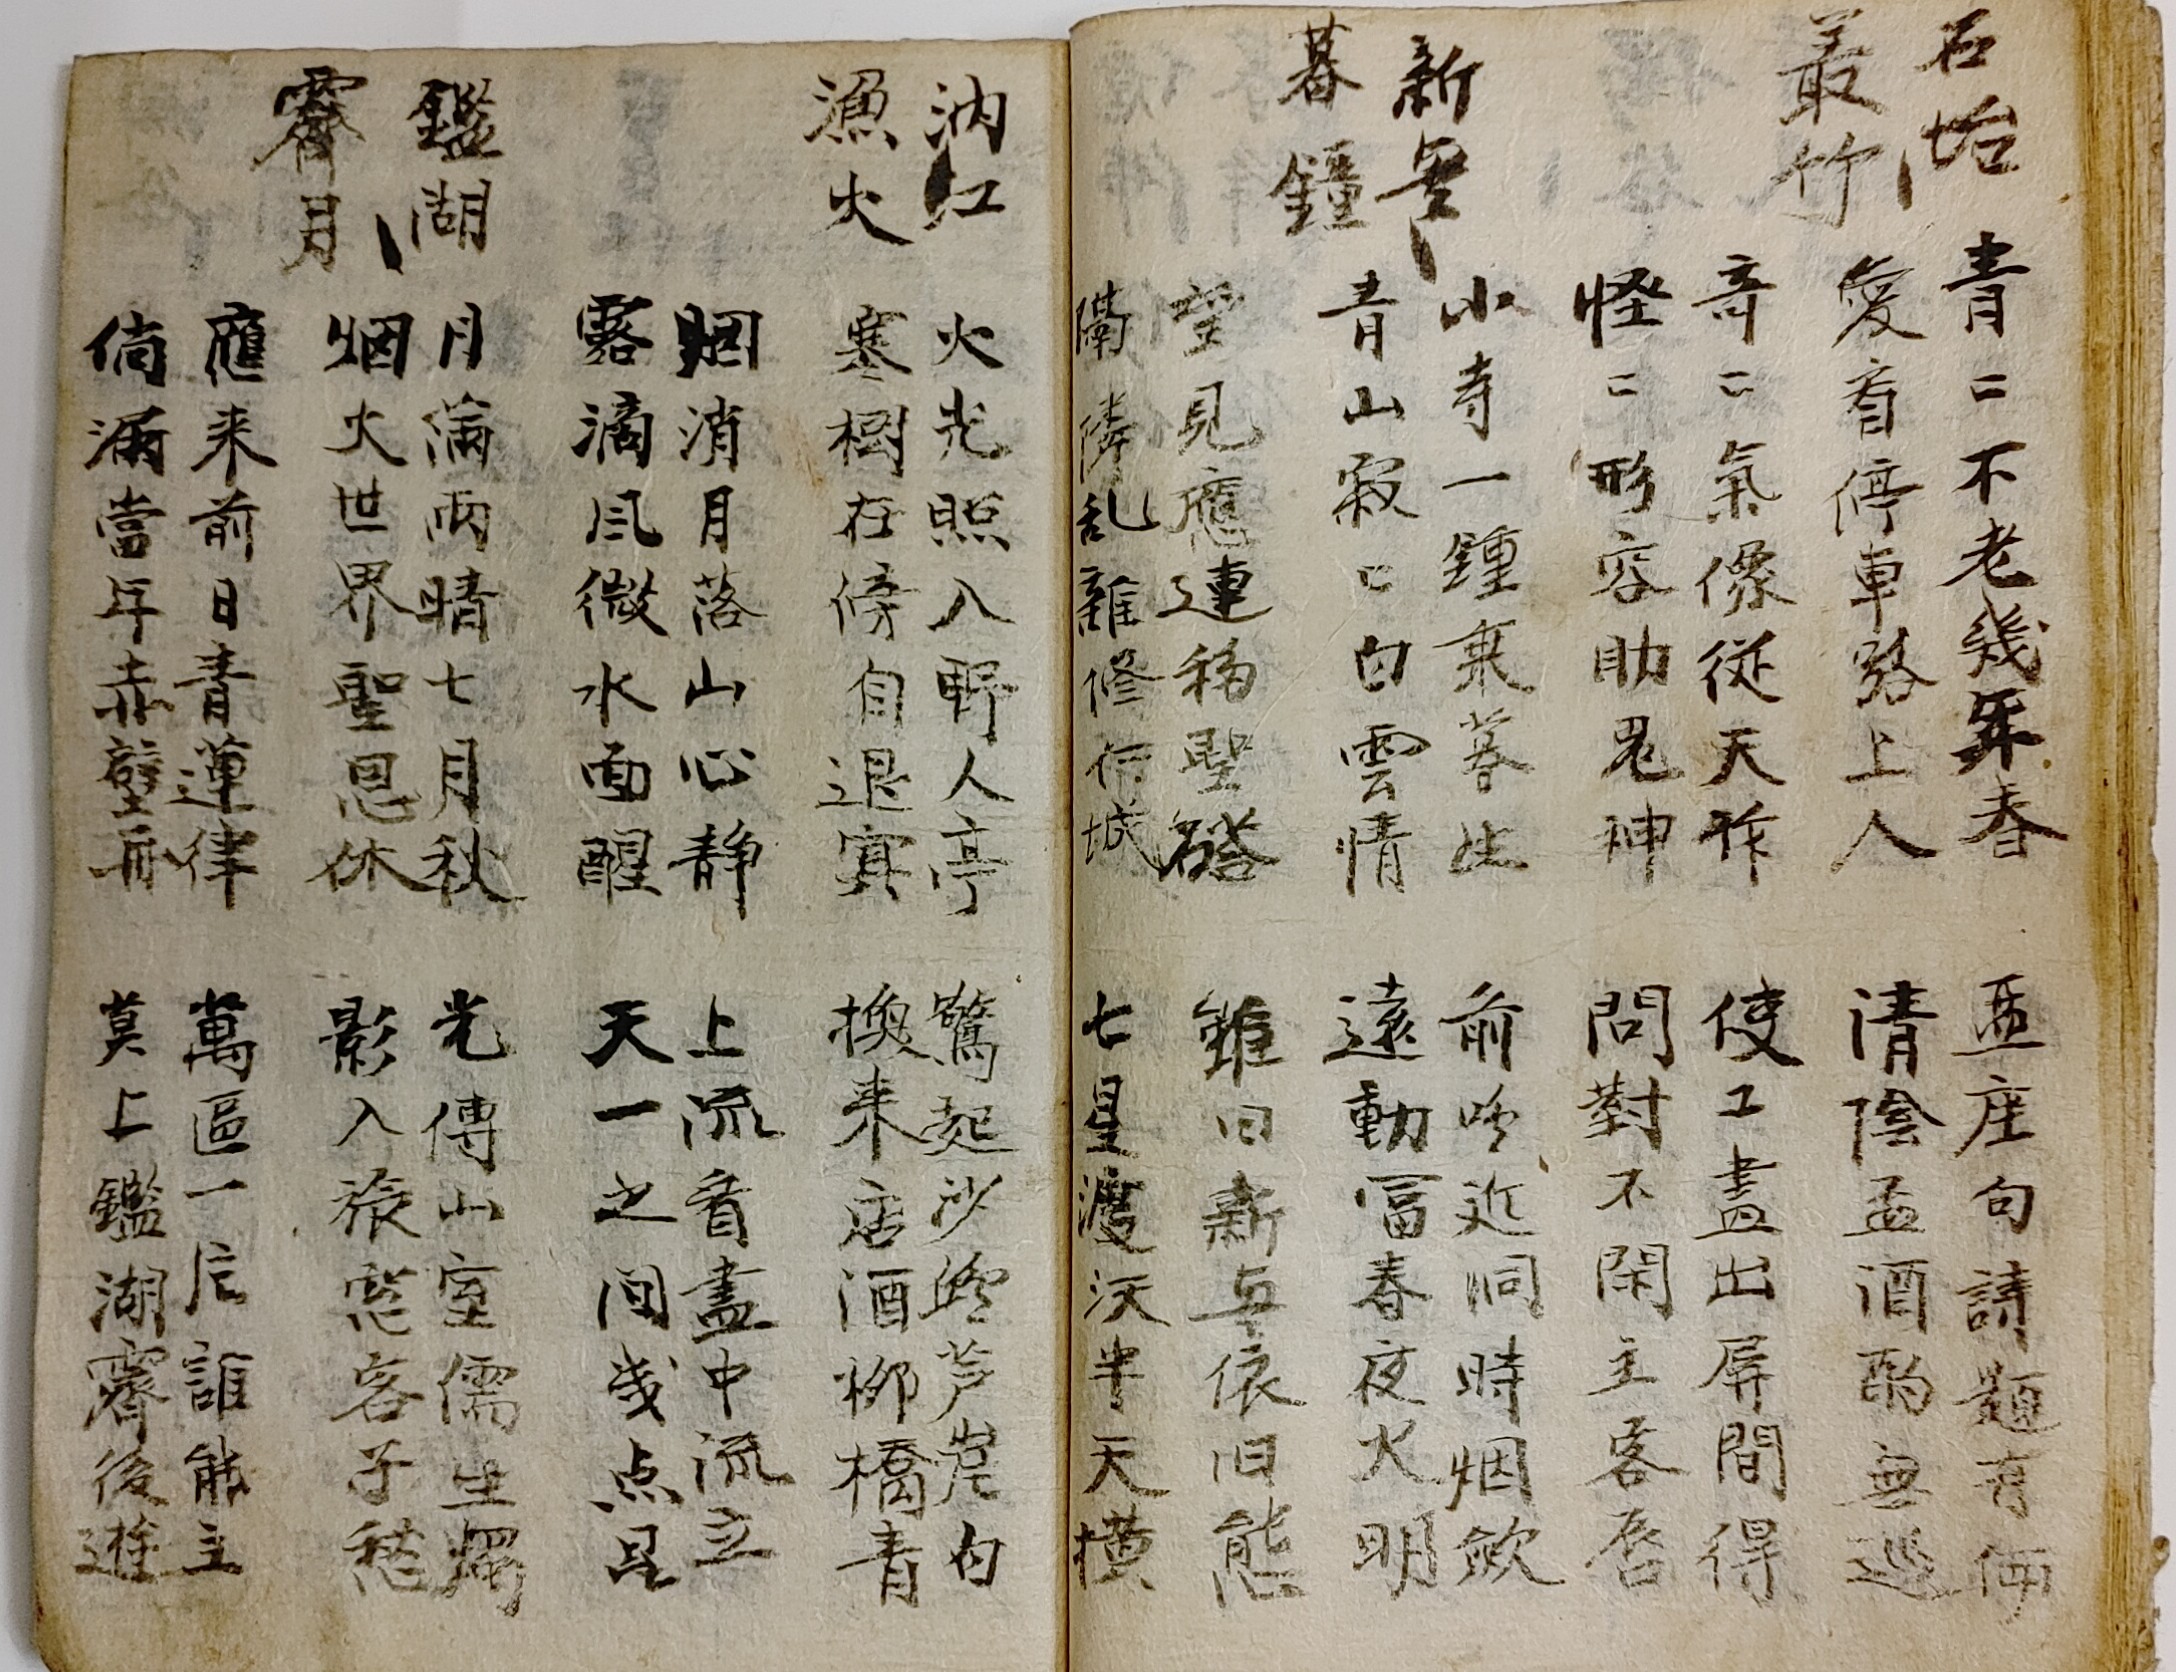 石 坮
叢竹
青二不老幾年春
亟座句請題有
愛看停車路上人
清陰孟酒酌無巡
奇二氣像從天作
使工盡出屏間得
怪二形容助鬼神
問對不閑主客唇
新
暮鐘
小寺一鍾乗菩
前吟近洞時烟斂
青山寂二白雲情
遠動冨春夜火明
望見應連稱聖
雖曰新与依旧態
隣乱離修城
七星渡沃半天横
汭江
漁火
火光照入野人亭
驚起沙鷗芦岸白
寒樹在傍自退賓
換来店酒柳橋青
烟消月落山心静
上流看盡中流立
露滴風微水面醒
天一之间幾点星
鑑湖
霽月
月滿雨晴七月秋
光傳山室儒生燭
烟火世界聖恩休
影入旅窓客子愁
應来前日青蓮律
萬區一后誰能主
倘滿當年赤壁舟
莫上鑑湖霽後遊